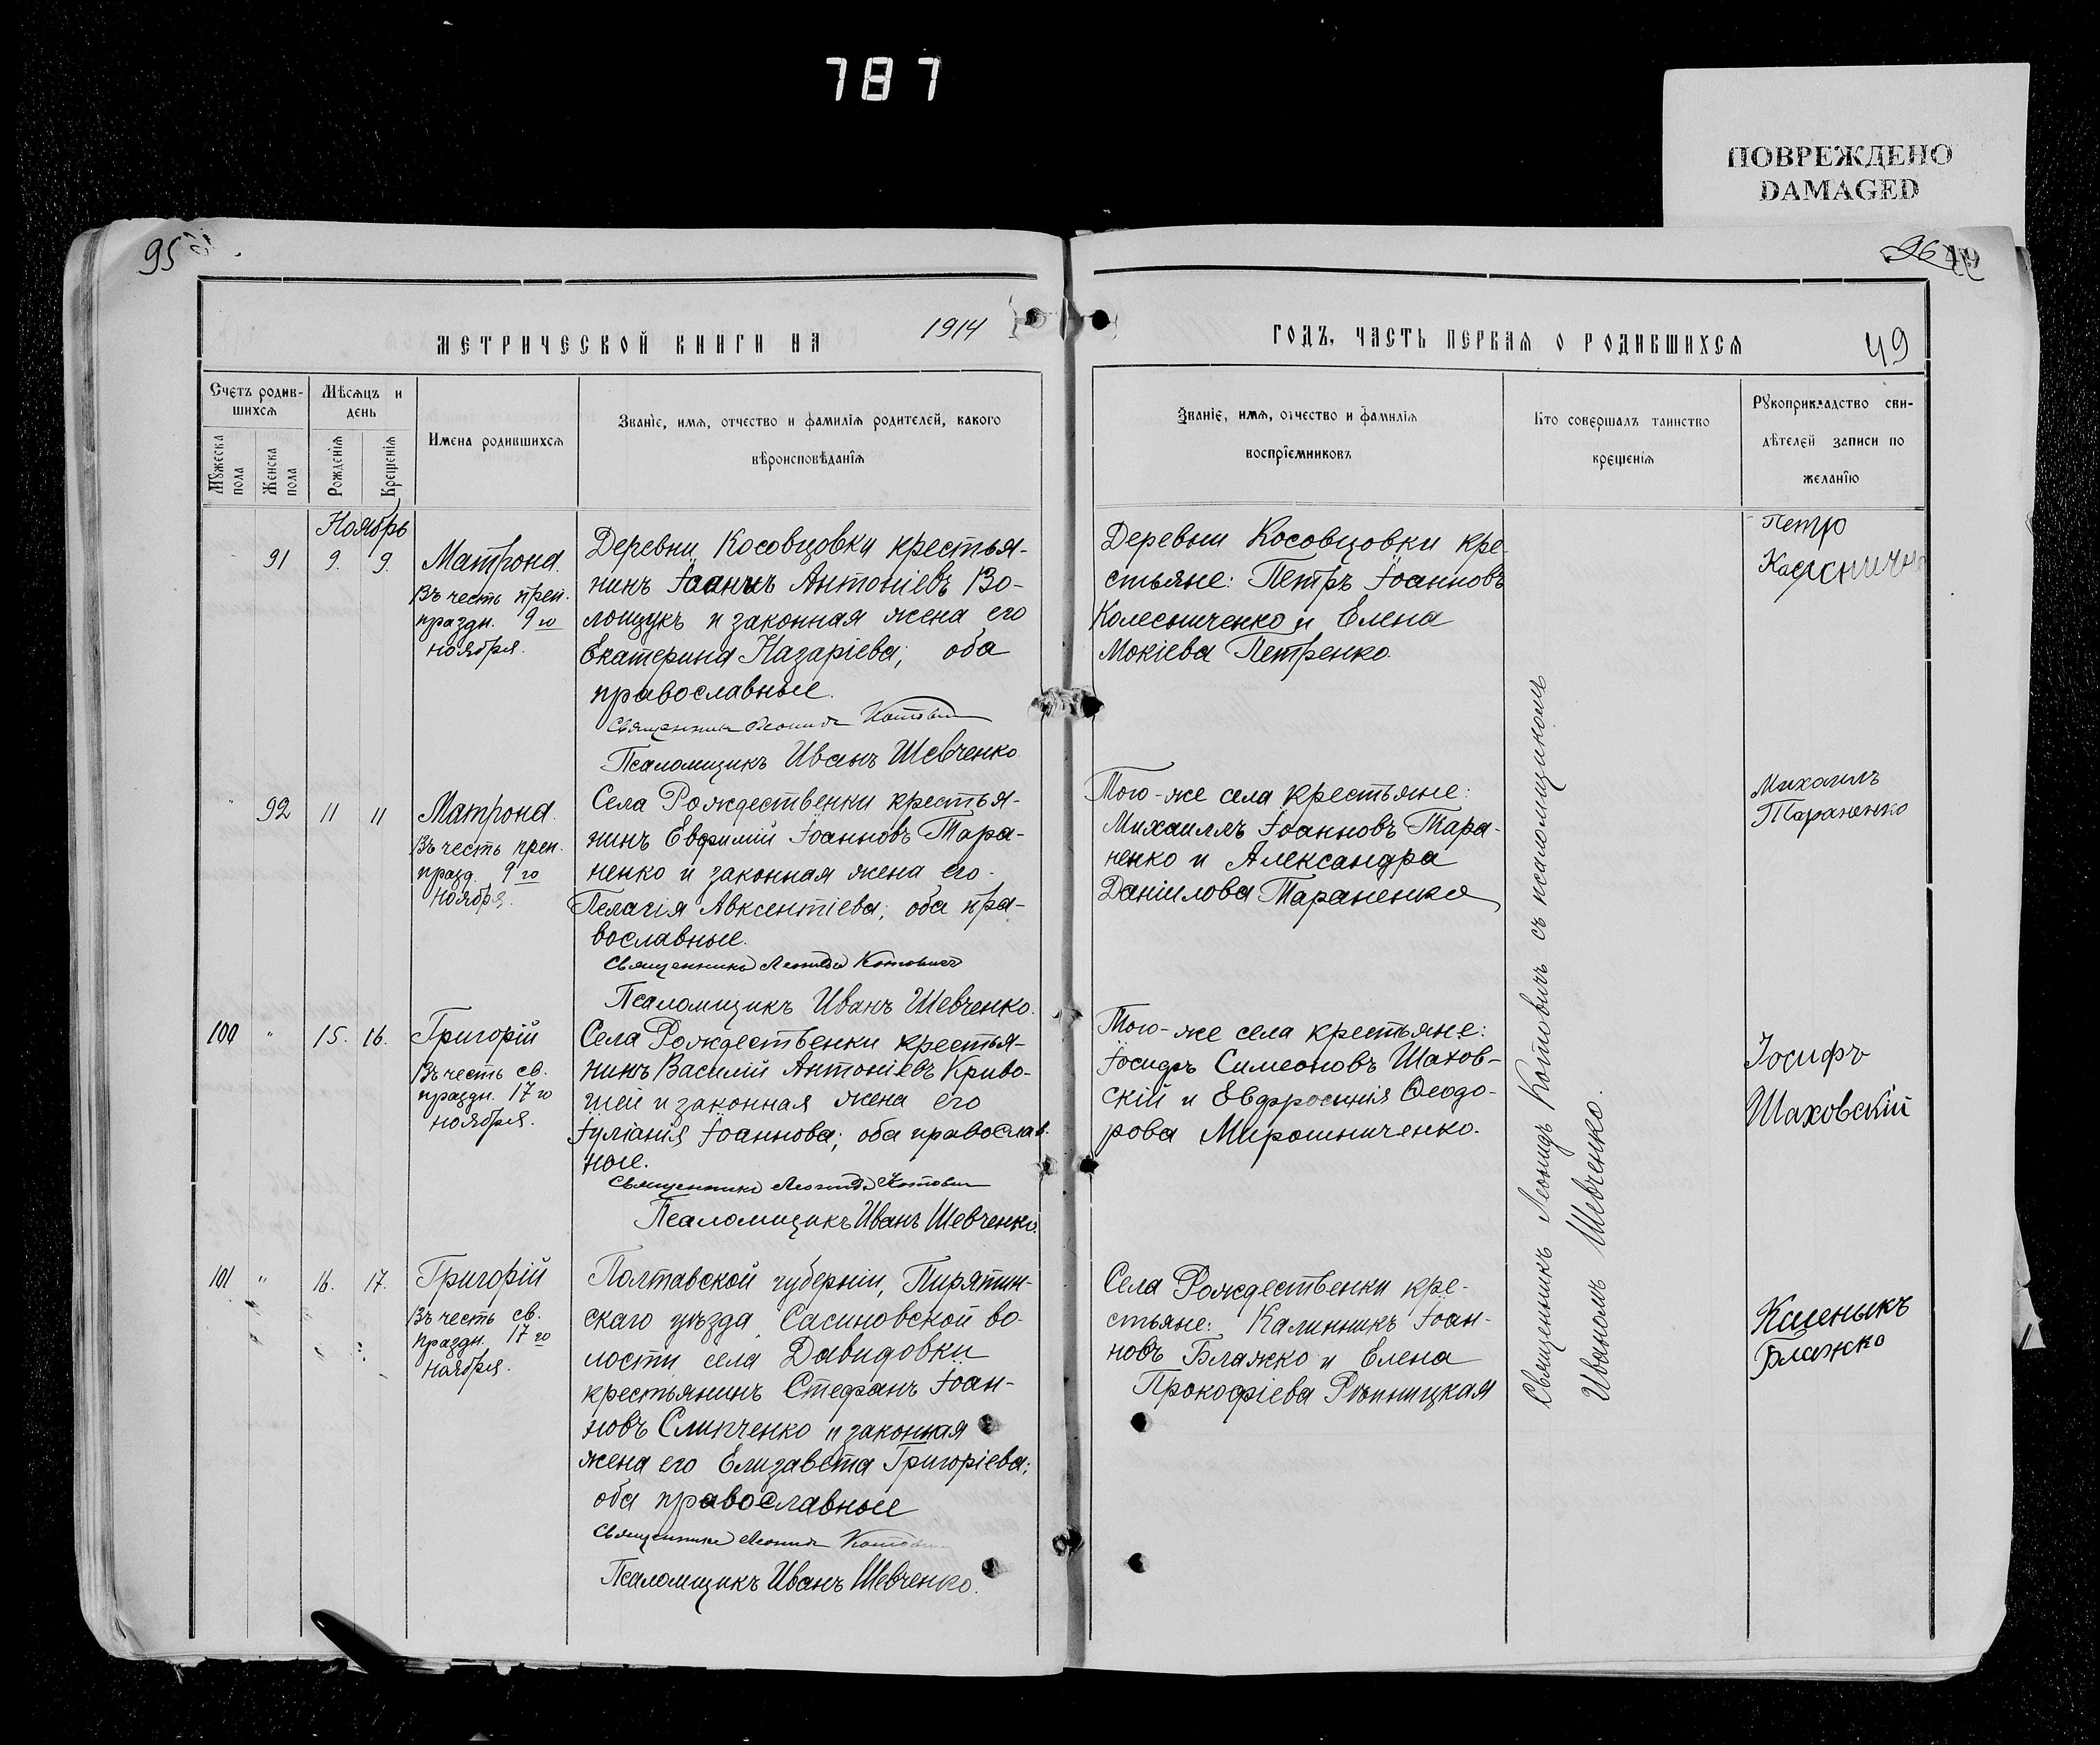 787
ПОВРЕЖДЕНО
DAMAGED
95
96
49
МЕТРИЧЕСКОЙ КНИГИ НА 1914
ГОДЪ, ЧАСТЬ ПЕРВАЯ О РОДИВШИХСЯ
49
Счетъ родив-
шихся
Мужеска
пола
Женска
пола
Мѣсяцъ и
день
Рожденія
Крещенія
Имена родившихся
Званіе, имя, отчество и фамилія родителей, какого
вѣроисповѣданія
Званіе, имя, отчество и фамилія
воспріемниковъ
Кто совершалъ таинство
крещенія
Рукоприкладство сви-
дѣтелей записи по
желанію
Ноябрь
91 9. 9.
Матрона.
Въ честь преп.
праздн. 9го
ноября.
Деревни Косовцовки крестья-
нинъ Іоаннъ Антоніевъ Во-
лощукъ и законная жена его
Екатерина Назаріева; оба
православные.
Священникъ Леонидъ Котовичъ
Псаломщикъ Иванъ Шевченко
Деревни Косовцовки кре-
стьяне: Петръ Іоанновъ
Колесниченко и Елена
Мокіева Петренко.
Петро
92 11 11
Матрона.
Въ честь преп.
празд. 9го
ноября.
Села Рождественки крестья-
нинъ Евфимій Іоанновъ Тара-
ненко и законная жена его
Пелагія Авксентіева; оба пра-
вославные.
Священникъ Леонидъ Котовичъ
Псаломщикъ Иванъ Шевченко.
Того-же села крестьяне:
Михаилъ Іоанновъ Тара-
ненко и Александра
Даніилова Тараненко
Михаилъ
Тараненко
100 " 15. 16.
Григорій
Въ честь св.
праздн. 17го
ноября.
Села Рождественки крестья-
нинъ Василій Антоніевъ Криво-
шей и законная жена его
Іуліанія Іоаннова; оба православ-
ные.
Священникъ Леонидъ Котовичъ
Псаломщикъ Иванъ Шевченко.
Того-же села крестьяне:
Іосифъ Симеоновъ Шахов-
скій и Евфросинія Ѳеодо-
рова Мирошниченко.
Іосифъ
Шаховскій
101 " 16. 17.
Григорій
Въ честь св.
праздн. 17го
ноября.
Полтавской губерніи, Пирятин-
скаго уѣзда, Сасиновской во-
лости, села Давидовки
крестьянинъ Стефанъ Іоан-
новъ Слипченко и законная
жена его Елизавета Григоріева;
оба православные
Священникъ Леонидъ Котовичъ
Псаломщикъ Иванъ Шевченко.
Села Рождественки кре-
стьяне: Калинникъ Іоан-
новъ Блажко и Елена
Прокофіева Рѣпницкая
Блажко
Священникъ Леонидъ Котовичъ съ псаломщикомъ
Иваномъ Шевченко.